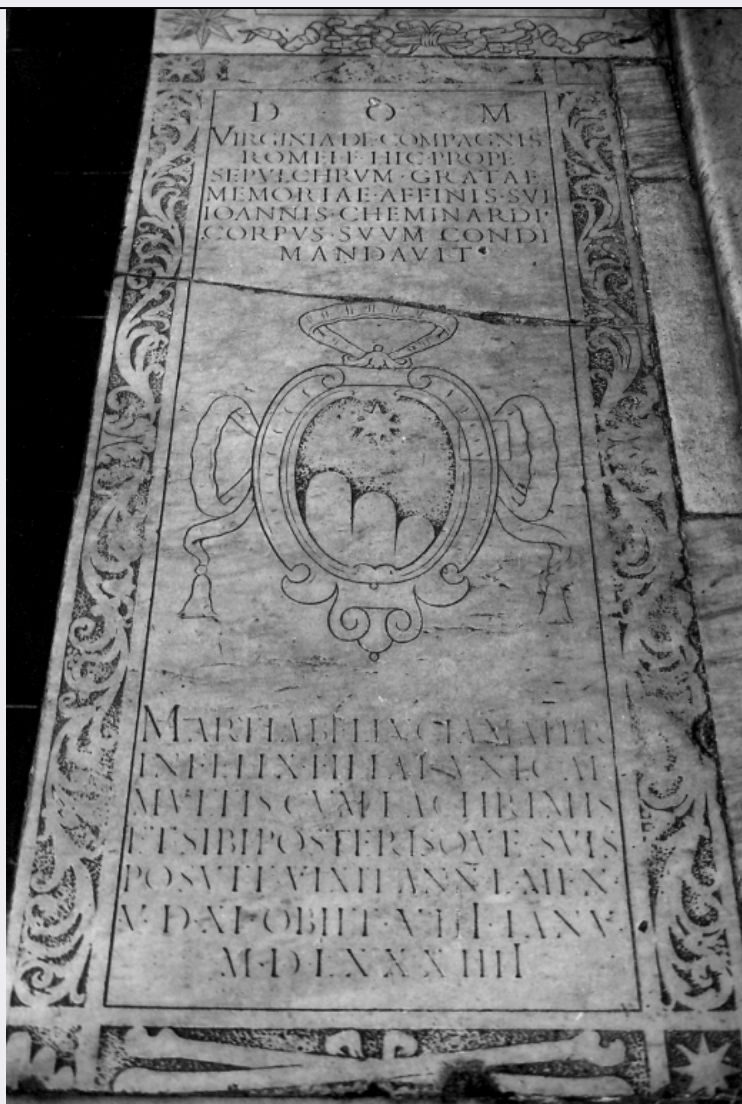 D O M
VIRGINIA DE COMPAGNIS
ROMEI F HIC PROPE
SEPVLCHRVM · GRATAE
MEMORIAE · AFFINIS · SVI
IOANNIS · CHEMINARDI ·
CORPVS · SVVM CONDI
MANDAVIT
MARTIA MATER
INFELIX FILIAE SV VNICAE
MVLTIS CVM LACHRIMIS
ET SIBI POSTERISQVE SVIS
POSVIT VIXIT ANN L MEN
V · D · XI · OBIIT · VIII · IANV ·
M · D L X X X IIII